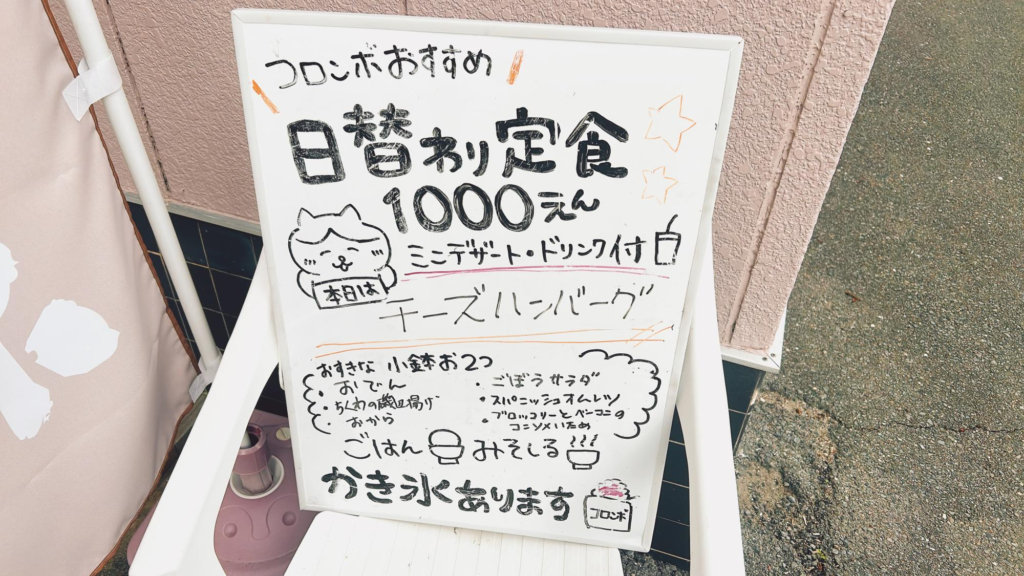 コロンボおすすめ
日替わり定食
1000えん
ミニデザート・ドリンク付
本日は
チーズハンバーグ
おすきな 小鉢お2つ
・おでん
・ちくわの磯辺揚げ
・おから
・ごぼうサラダ
・スパニッシュオムレツ
・ブロッコリーとベーコンの
コンソメいため
ごはん みそしる
かき氷あります
コロンボ